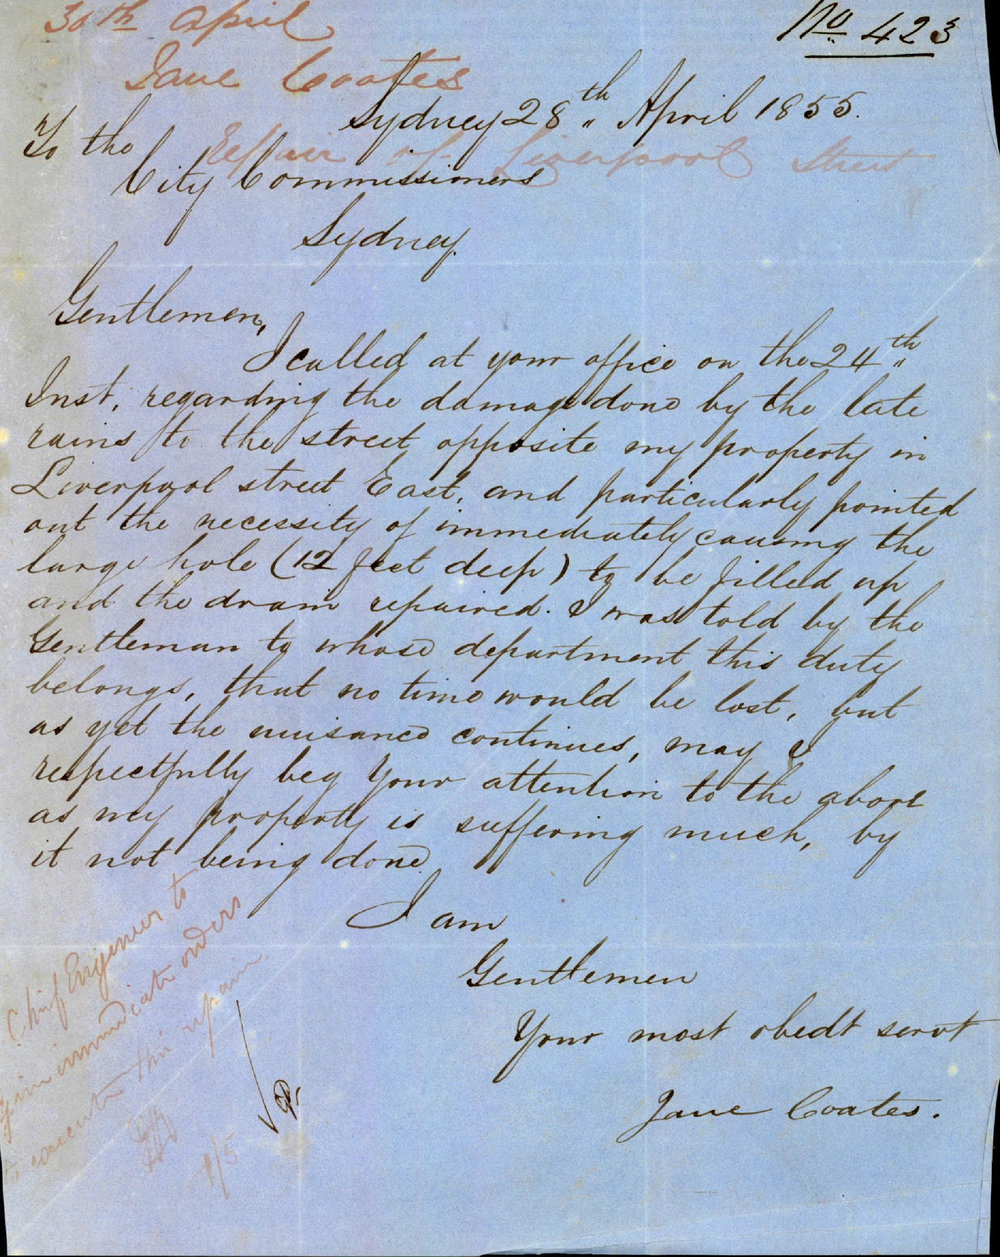 30th April
No 423
Jane Coates
Sydney 28th April 1855.
To the
Repair of Liverpool Street
City Commissioners
Sydney.
Gentlemen,
I called at your office on the 24th
Inst. regarding the damage done by the late
rains to the street opposite my property in
Liverpool street East, and particularly pointed
out the necessity of immediately causing the
large hole (12 feet deep) to be filled up
and the drain repaired. I was told by the
Gentleman to whose department this duty
belongs, that no time would be lost, but
as yet the nuisance continues, may I
respectfully beg your attention to the above
as my property is suffering much, by
it not being done.
I am
Gentlemen
Your most obedt servt
Jane Coates.
Chief Engineer to
give immediate orders
to execute this repair.
1/5